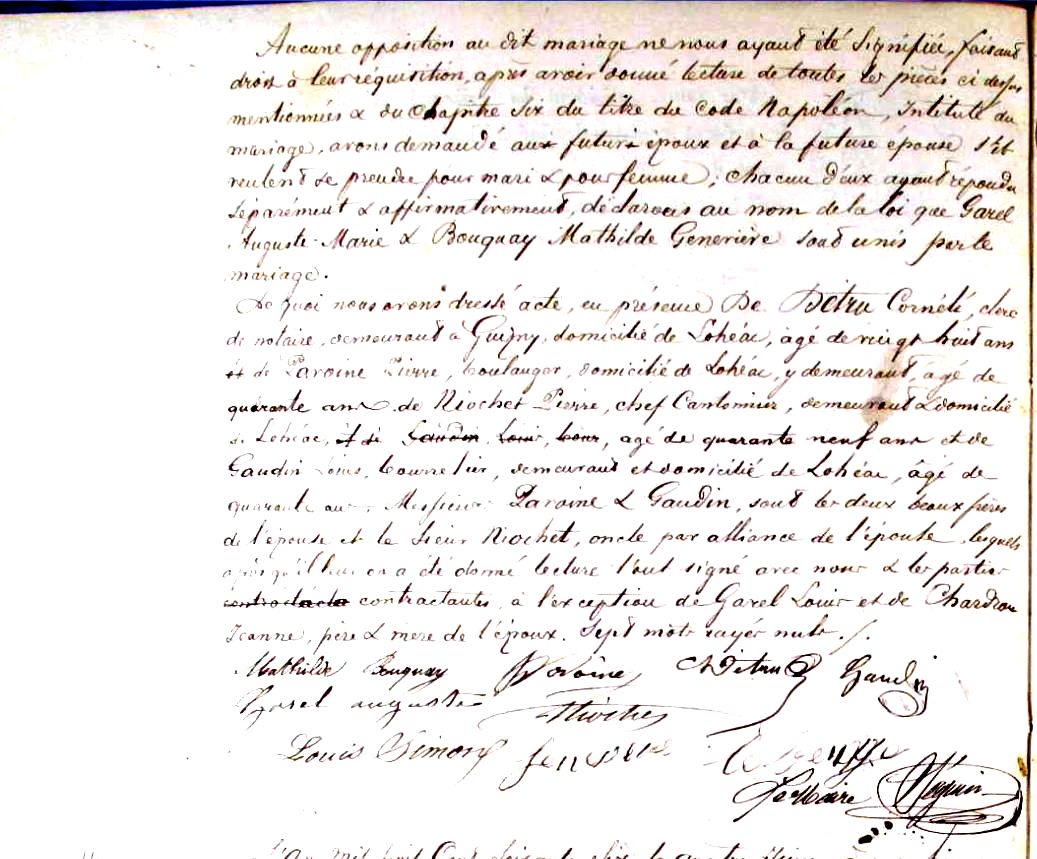 Aucune opposition au dit mariage ne nous ayant été signifiée, faisant
droit à leur réquisition, après avoir donné lecture de toutes les pièces ci dessus
mentionnées & du chapitre six du titre du Code Napoléon, Intitulé du
mariage, avons demandé aux futurs époux et à la future épouse s'ils
veulent se prendre pour mari & pour femme ; chacun d'eux ayant répondu
séparément & affirmativement, déclarons au nom de la loi que Garel
Auguste Marie & Bouquay Mathilde Geneviève sont unis par le
mariage.
De quoi nous avons dressé acte, en présence De Détru Corneli, clerc
de notaire, demeurant à Guipry, domicilié de Lohéac, âgé de vingt huit ans
et de Paroine Pierre, boulanger, domicilié de Lohéac, y demeurant, âgé de
quarante ans, de Riochet Pierre, chef Cantonnier, demeurant & domicilié
de Lohéac, et de Gaudin Louis, bour, agé de quarante neuf ans et de
Gaudin Louis, bourrelier, demeurant et domicilié de Lohéac, âgé de
quarante ans. Messieurs Paroine & Gaudin, sont les deux beaux frères
de l'épouse et le sieur Riochet, oncle par alliance de l'épouse, lesquels
après qu'il leur en a été donné lecture l'ont signé avec nous & les parties
contractantes, à l'exception de Garel Louis et de Chardron
Jeanne, père & mère de l'époux. Sept mots rayés nuls ./.
Mathilde Bouquay Paroine Détru Gaudin
Garel auguste Riochet
Louis Simon
Le Maire